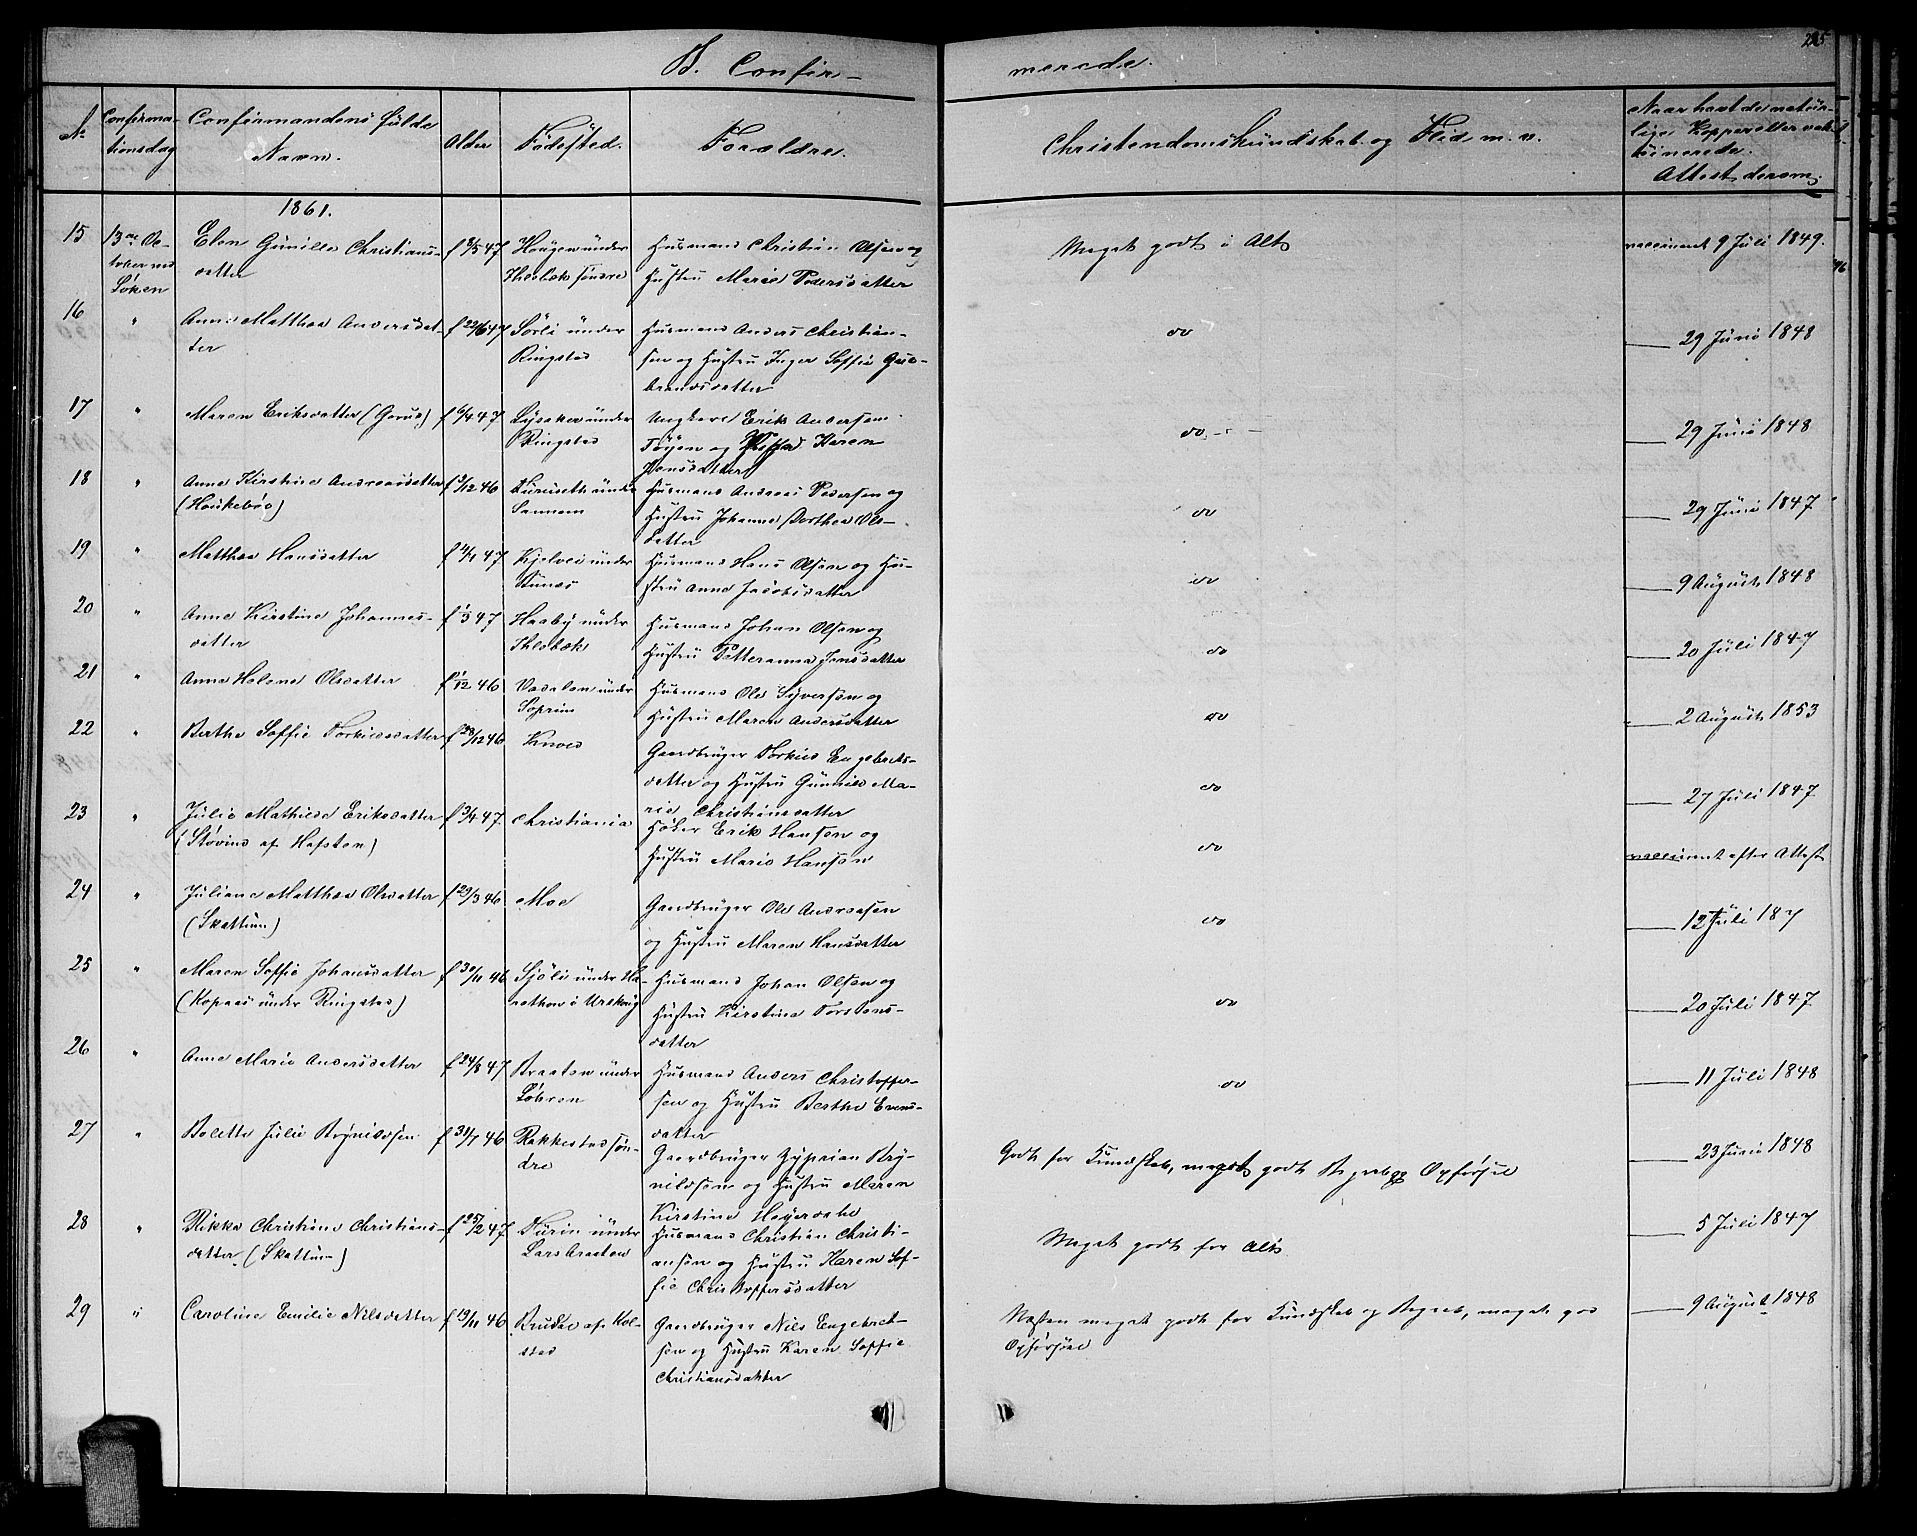 B. Confir-
merede.
225
№
Confirma-
tionsdag
Confirmandens fulde
Navn.
Alder
Fødested.
Forældre.
Christendomskundskab og Flid m. v.
Naar havt de natur-
lige Kopper eller vak-
cinerede.
Attest derom.
1861.
15 13de Oc-
tober ved
Løken
Elen Gunille Christians-
datter
f 8/5 47
Haugen under
Thelbæk søndre
Husmand Christian Olsen og
Hustru Marie Pedersdatter
Meget godt i Alt
vaccineret 9 Juli 1849.
16 "
Anne Matthea Andersdat-
ter
f 22/6 47
Sørli under
Ringstad
Husmand Anders Christian-
sen og Hustru Inger Soffie Gul-
brandsdatter
do
29 Juni 1848
17 "
Maren Eriksdatter (Gorud)
f 6/4 47
Lysaker under
Ringstad
Ungkarl Erik Andersen
Tøien og Karen
Hansdatter
do
29 Juni 1848
18 "
Anne Kirstine Andreasdatter
(Haukebøe)
f /12 46
under
Sannem
Husmand Andreas Pedersen og
Hustru Johanne Dorthea Ols-
datter
do
29 Juni 1847
19 "
Matthea Hansdatter
f /1 47
Kjelvei under
Husmand Hans Olsen og Hu-
stru Anne Jacobsdatter
do
9 August 1848
20 "
Anne Kirstine Johannes-
datter
f 1/3 47
Haaby under
Thelbæk
Husmand Johan Olsen og
Hustru Petteranna Jensdatter
do
20 Juli 1847
21 "
Anne Helene Olsdatter
f 1/12 46
under
Søprim
Husmand Ole Syversen og
Hustru Maren Andersdatter
do
2 August 1853
22 "
Berthe Soffie Torkildsdatter
f 28/12 46
Knold
Gaardbruger Torkild Engebrets-
datter og Hustru Gunnild Ma-
rie Christiansdatter
do
27 Juli 1847
23 "
Julie Mathilde Eriksdatter
(Støvind af Hafsten)
f 3/4 47.
Christiania
Høker Erik Hansen og
Hustru Marie Hansen
do
vaccineret efter Attest
24 "
Juliane Matthea Olsdatter
(Skattum)
f 29/3 46
Moe
Gaardbruger Ole Andreasen
og Hustru Maren Hansdatter
do
12 Juli 187
25 "
Maren Soffie Johansdatter
(Kopaas under Ringstad)
f 30/11 46
Sjøli under Ha-
nethom i Urskoug
Husmand Johan Olsen og
Hustru Kirstine Torstens-
datter
do
20 Juli 1847
26 "
Anne Marie Andersdatter
f 24/8 47
Braaten under
Løhren
Husmand Anders Christoffer-
sen og Hustru Berthe Evens-
datter
do
11 Juli 1848
27 "
Bolette Julie Brynildsen
f 31/7 46
Rakkestad søn-
dre
Gaardbruger Zyprian Bry-
nildsen og Hustru Maren
Kirstine Heyerdahl
Godt for Kundskab, meget godt Begreb og Opførsel
23 Juni 1848
28 "
Rikka Christine Christians-
datter (Skattum)
f 25/2 47
Durin under
Larsbraaten
Husmand Christian Christi-
ansen og Hustru Karen Sof-
fie Christoffersdatter
Meget godt for Alt
5 Juli 1847
29 "
Caroline Emilie Nilsdatter
f 19/11 46
Brudal af Kol-
stad
Gaardbruger Nils Engebret-
sen og Hustru Karen Soffie
Christiansdatter
Næsten meget godt for Kundskab og Begreb, meget god
Opførsel
9 August 1848